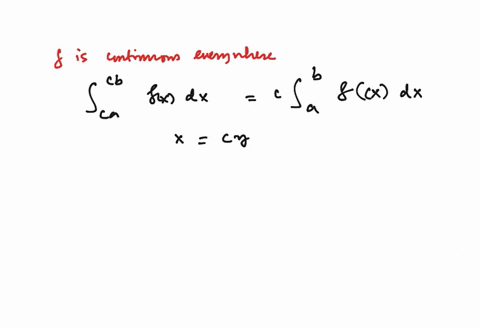 f is continuous everywhere
∫_{ca}^{cb} f(x) dx = c ∫_{a}^{b} f(cx) dx
x = cy